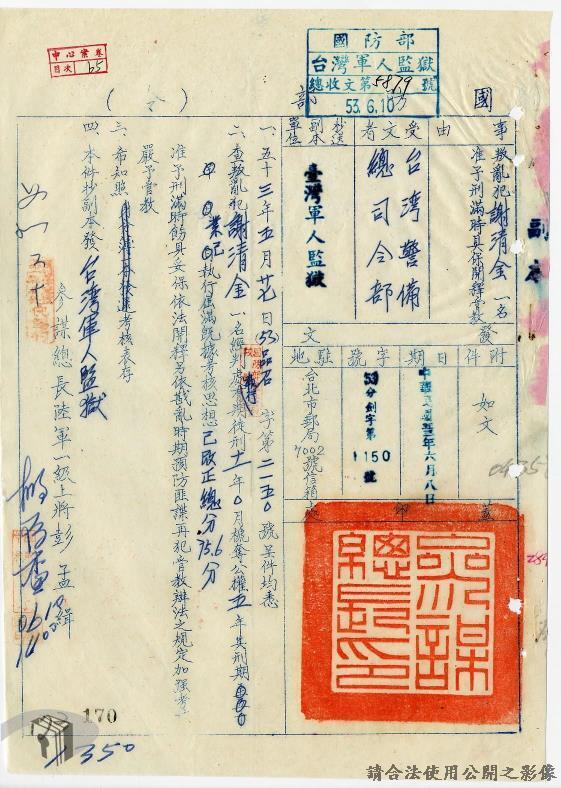 中心案卷
目次 65
國防部
台灣軍人監獄
總收文第5879號
53.6.10
國
部
(令)
事由
叛亂犯謝清金一名
准予刑滿時具保開釋管教
副本
受文者
台灣警備
總司令部
抄送副本單位
臺灣軍人監獄
附件
如文
發文
日期
中華民國五十三年六月八日
字號
53分劍字第
1150
號
駐地
台北市郵局
7002
號信箱
蓋印
參謀總長印
一、五十三年五月廿七日(53)品名字第二一五〇號呈件均悉
二、查叛亂犯謝清金一名經判處有期徒刑十一年0月褫奪公權五年其刑期
執行屆滿既據考核思想已改正總分75.6分
准予刑滿時飭具妥保依法開釋另依戡亂時期預防匪諜再犯管教辦法之規定加強考
嚴予管教
三、希知照
考核表存
四、本件抄副本發台灣軍人監獄
參謀總長陸軍一級上將彭孟緝
0618
1400
170
350
請合法使用公開之影像